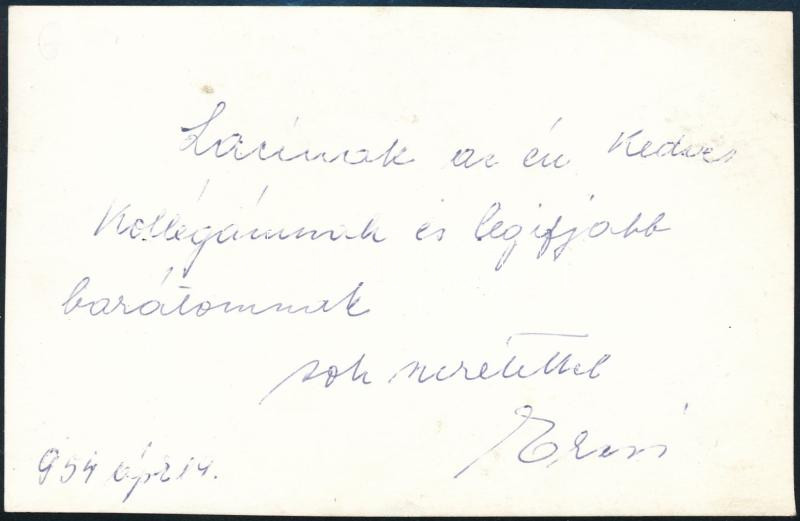 Lacinak az én Kedves
Kollégámnak és legifjabb
barátomnak
sok szeretettel
Erzsi
954 ápr 14.